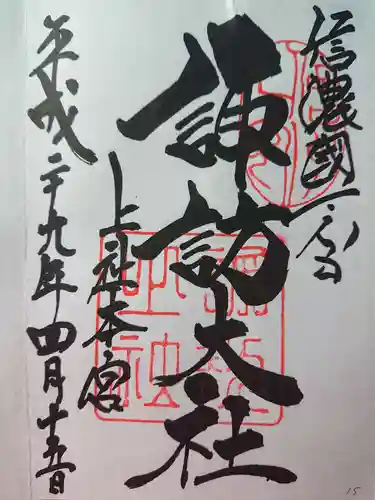 信濃國一之宮
諏訪大社
上社本宮
平成二十九年四月十五日
15